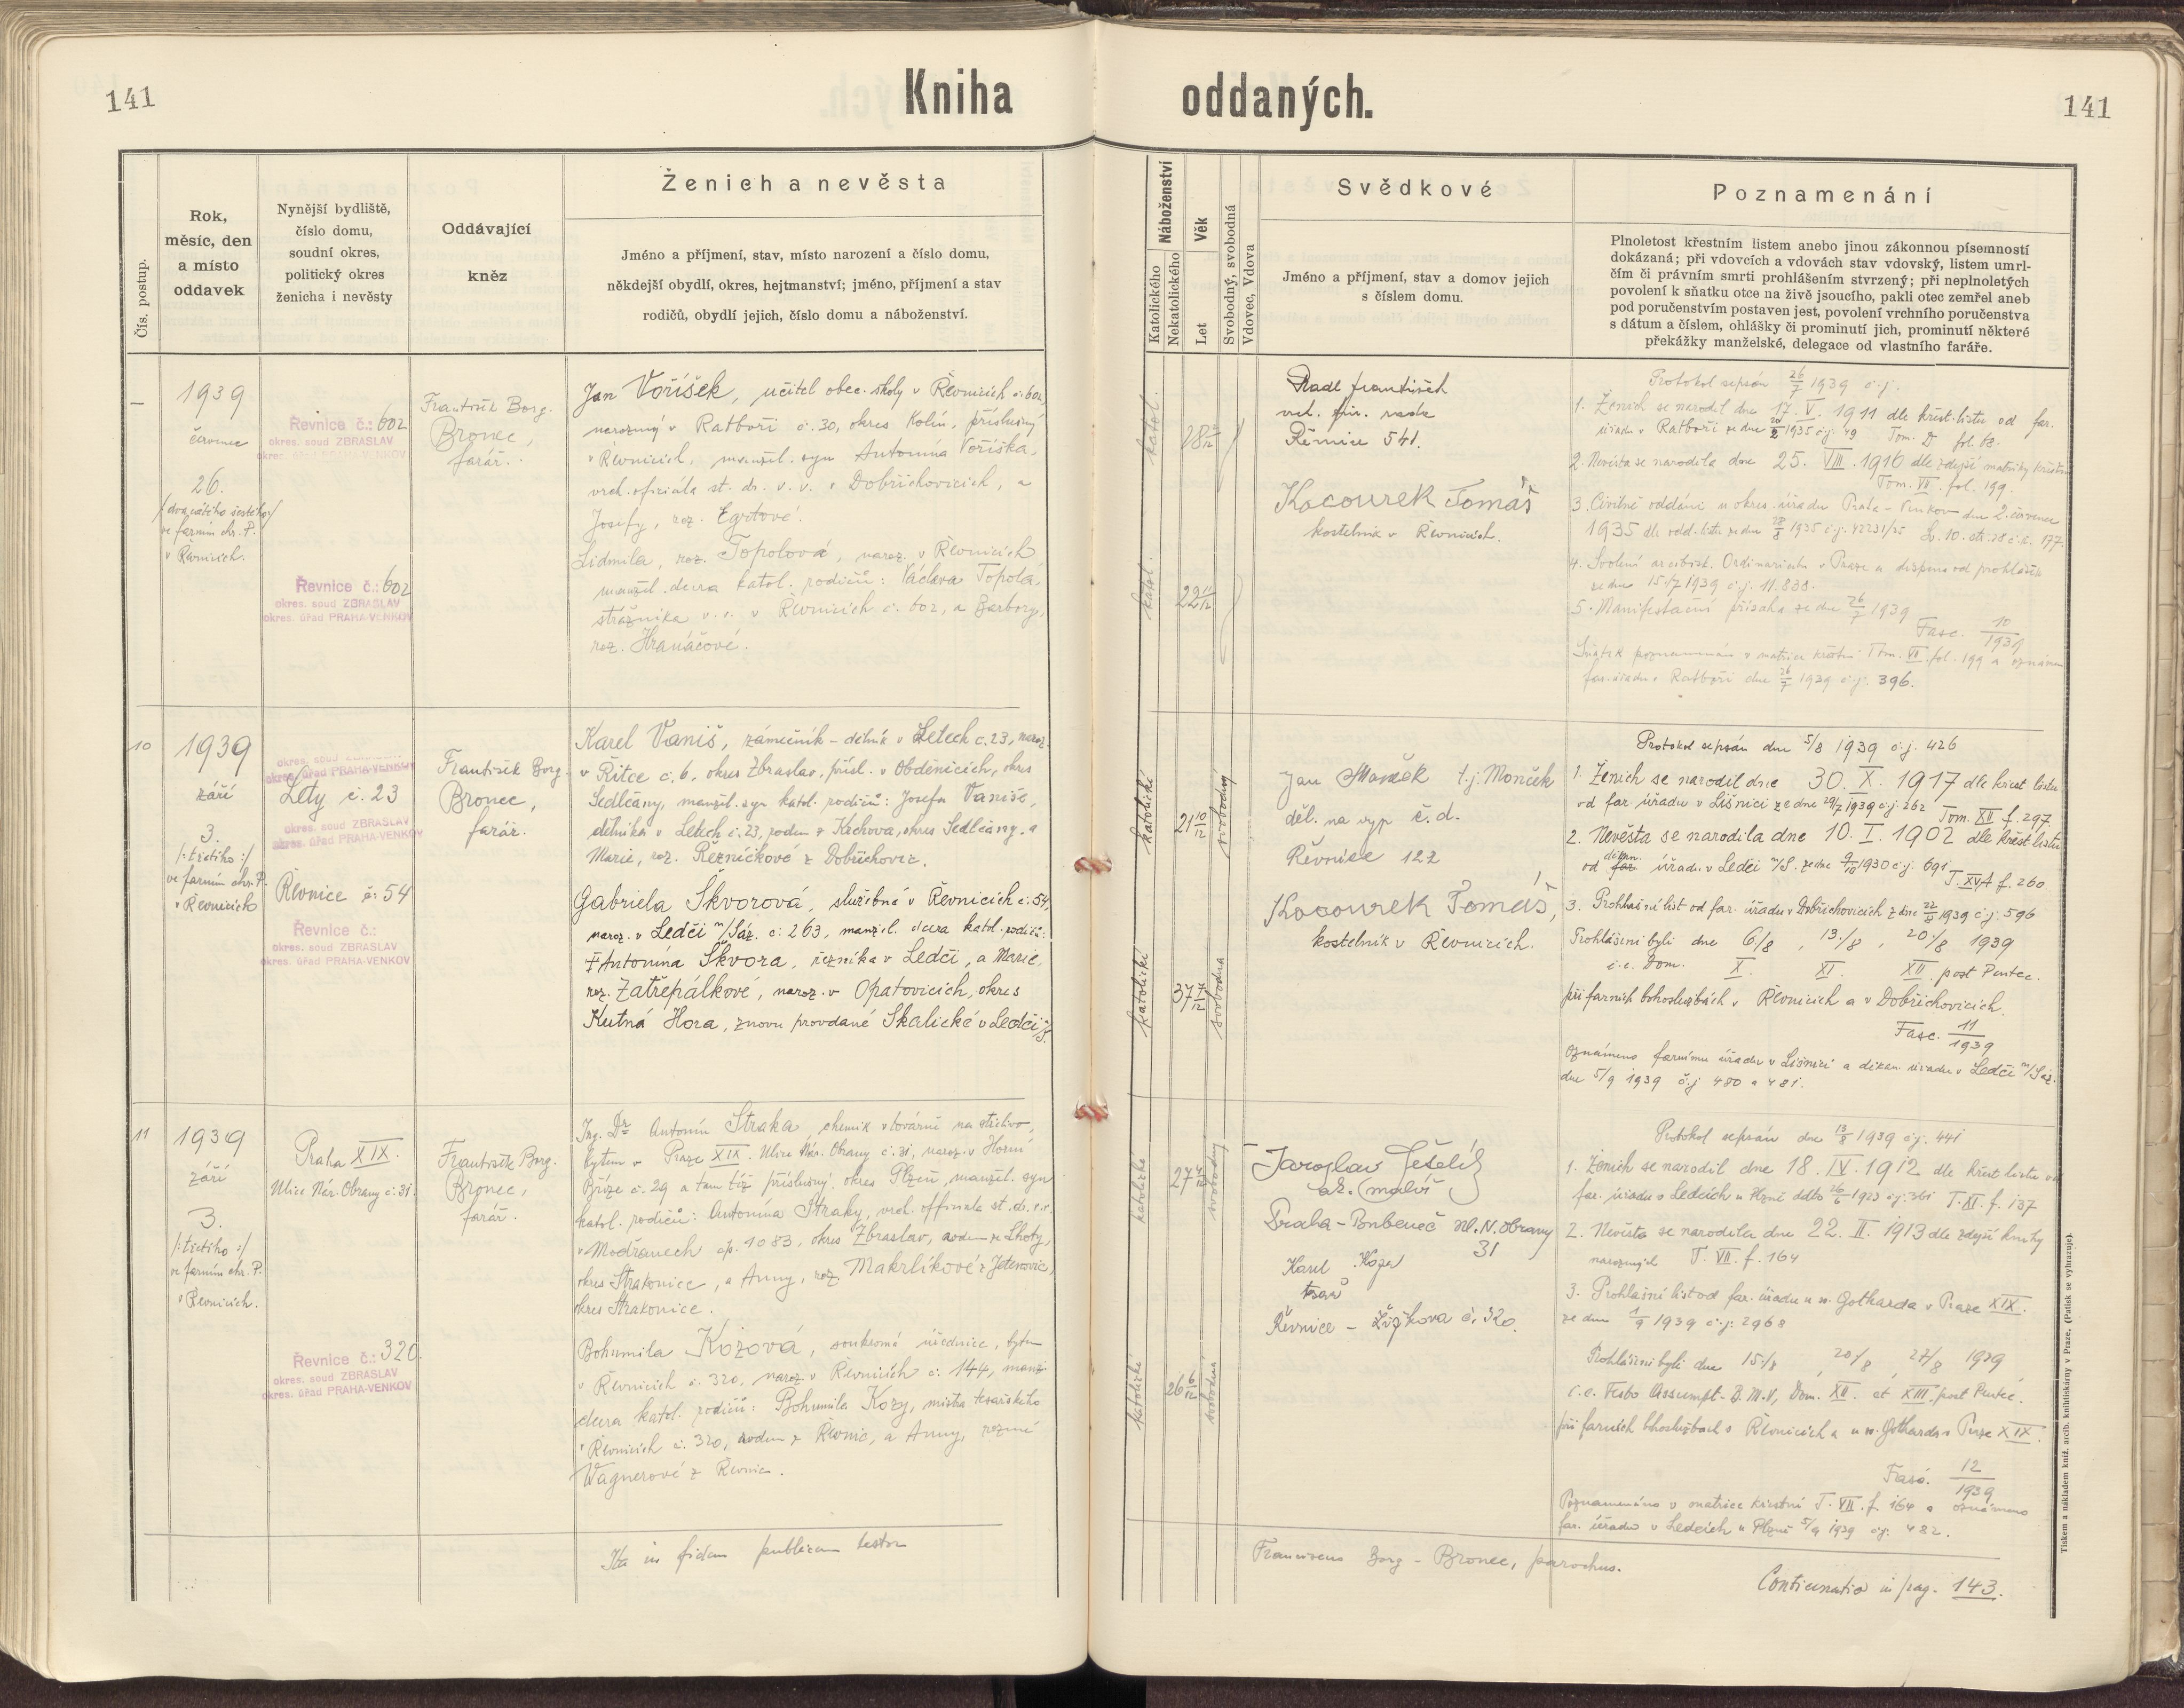 141
Kniha oddaných.
141
Čís. postup.
Rok,
měsíc, den
a místo
oddavek
Nynější bydliště,
číslo domu,
soudní okres,
politický okres
ženicha i nevěsty
Oddávající
kněz
Ženich a nevěsta
Jméno a příjmení, stav, místo narození a číslo domu,
někdejší obydlí, okres, hejtmanství; jméno, příjmení a stav
rodičů, obydlí jejich, číslo domu a náboženství.
Náboženství
Katolického
Nekatolického
Věk
Let
Svobodný, svobodná
Vdovec, Vdova
Svědkové
Jméno a příjmení, stav a domov jejich
s číslem domu.
Poznamenání
Plnoletost křestním listem anebo jinou zákonnou písemností
dokázaná; při vdovcích a vdovách stav vdovský, listem umrl-
čím či právním smrti prohlášením stvrzený; při neplnoletých
povolení k sňatku otce na živě jsoucího, pakli otec zemřel aneb
pod poručenstvím postaven jest, povolení vrchního poručenstva
s dátum a číslem, ohlášky či prominutí jich, prominutí některé
překážky manželské, delegace od vlastního faráře.
1939
červenec
26.
/dvacátého šestého/
ve farním chr. P.
v Řevnicích.
Řevnice č.: 602
okres. soud ZBRASLAV
okres. úřad PRAHA-VENKOV
Řevnice č.: 602
okres. soud ZBRASLAV
okres. úřad PRAHA-VENKOV
František Borg.
Bronec,
farář.
Jan Voříšek, učitel obec. školy v Řevnicích č. 602,
narozený v Ratboři č. 30, okres Kolín, příslušný
v Řevnicích, manžel. syn Antonína Voříška,
vrch. oficiála st. dr. v. v. v Dobřichovicích, a
Josefy, roz. Egrtové.
Lidmila, roz. Topolová, naroz. v Řevnicích
manžel. dcera katol. rodičů: Václava Topola,
strážníka v. v. v Řevnicích č. 602, a Barbory,
roz. Hranáčové.
katol.
28
katol.
22
Radl František
vrch. rada
Řevnice 541.
Kocourek Tomáš
kostelník v Řevnicích.
Protokol sepsán 26/7 1939 č.j.
1. Ženich se narodil dne 17. V. 1911 dle křest. listu od far.
úřadu v Ratboři ze dne 20/2 1935 č.j. 49 Tom. D fol. 68.
2. Nevěsta se narodila dne 25. VIII. 1916 dle zdejší matriky křestní
Tom. VII. fol. 199.
3. Civilně oddáni u okres. úřadu Praha-Venkov dne 2. července
1935 dle odd. listu ze dne 28/8 1935
4. Svolení arcibisk. Ordinariátu v Praze a dispens od prohlášek
ze dne 15./7 1939 č.j. 11.838.
5. Manifestační přísaha ze dne 26/7 1939
Fasc. 10/1939
Sňatek poznamenán v matrice křestní Tom. VII. fol. 199 a oznámen
far. úřadu v Ratboři dne 26/7 1939 č.j. 396.
10
1939
září
3.
/: třetího :/
ve farním chr. P.
v Řevnicích
okres. úřad PRAHA-VENKOV
Lety č. 23
okres. soud ZBRASLAV
okres. úřad PRAHA-VENKOV
Řevnice č. 54
Řevnice č.:
okres. soud ZBRASLAV
okres. úřad PRAHA-VENKOV
František Borg.
Bronec,
farář.
Karel Vaniš, zámečník - dělník v Letech č. 23, naroz.
v Řitce č. 6, okres Zbraslav, přísl. v Obděnicích, okres
Sedlčany, manžel. syn katol. rodičů: Josefa Vaniše,
dělníka v Letech č. 23, rodem z Kechova, okres Sedlčany, a
Marie, roz. Řezníčkové z Dobřichovic.
Gabriela Škvorová, služebná v Řevnicích č. 54,
naroz. v Ledči n/Sáz. č. 263, manžel. dcera katol. rodičů:
† Antonína Škvora, řezníka v Ledči, a Marie,
roz. Zatřepálkové, naroz. v Opatovicích, okres
Kutná Hora, znovu provdané Skalické v Ledči n/S.
katolické
21 10/12
svobodný
katolické
37
svobodná
Jan Monček t.j. Monček
děl. na výp č. d.
Řevnice 122
Kocourek Tomáš,
kostelník v Řevnicích.
Protokol sepsán dne 5/8 1939 č.j. 426
1. Ženich se narodil dne 30. X. 1917 dle křest listu
od far. úřadu v Líšnici ze dne 29/7 1939 č.j. 262 Tom. XII f. 297.
2. Nevěsta se narodila dne 10. I. 1902 dle křest listu
od děkan. úřadu v Ledči n/S. ze dne 9/10 1930 č.j. 691 T. XVA f. 260.
3. Prohlašní list od far. úřadu v Dobřichovicích z dne 22/8 1939 č.j. 596
Prohlášeni byli dne 6./8, 13./8, 20./8 1939
i.e. Dom. X. XI. XII. post Pentec.
při farních bohoslužbách v Řevnicích a v Dobřichovicích.
Fasc. 11/1939
Oznámeno farnímu úřadu v Líšnici a děkan. úřadu v Ledči n/Sáz.
dne 5/9 1939 č.j. 480 a 481.
11
1939
září
3.
/: třetího :/
ve farním chr. P.
v Řevnicích.
Praha XIX.
Ulice Nár. Obrany č. 31.
Řevnice č.: 320.
okres. soud ZBRASLAV
okres. úřad PRAHA-VENKOV
František Borg.
Bronec,
farář.
Ing. Dr. Antonín Straka, chemik v továrně na střelivo,
bytem v Praze XIX. Ulice Nár. Obrany č. 31, naroz. v Horní
Bříze č. 29 a tam též příslušný, okres Plzeň, manžel. syn
katol. rodičů: Antonína Straky, vrch. officiala st. dr. v.v.
v Modřanech čp. 1083, okres Zbraslav, rodem ze Lhoty,
okres Strakonice, a Anny, roz. Makrlíkové z Jetenovic,
okres Strakonice.
Bohumila Kozová, soukromá úřednice, bytem
v Řevnicích č. 320, naroz. v Řevnicích č. 144, manž.
dcera katol. rodičů: Bohumila Kozy, mistra tesařského
v Řevnicích č. 320, rodem z Řevnic, a Anny, rozené
Wagnerové z Řevnic.
katolické
27
svobodný
katolické
26 6/12
svobodná
Jaroslav
ak. malíř
Praha-Bubeneč Ul. N. Obrany
31
Karel Koza
tesař
Řevnice - Žižkova č. 320.
Protokol sepsán dne 13/8 1939 č.j. 441
1. Ženich se narodil dne 18. IV. 1912 dle křest listu od
far. úřadu v Ledcích u Plzně ddto 26/6 1923 č.j. 361 T. XI. f. 137
2. Nevěsta se narodila dne 22. II. 1913 dle zdejší knihy
narozených T. VII. f. 164
3. Prohlašní list od far. úřadu u sv. Gotharda v Praze XIX.
ze dne 1/9 1939 č.j. 2968
Prohlášeni byli dne 15./8, 20./8 27./8 1939
i.e. Festo Assumpt. B. M. V, Dom. XII. et XIII. post Pentec.
při farních bohoslužbách v Řevnicích a u sv. Gotharda v Praze XIX.
Fasc. 12/1939
Poznamenáno v matrice křestní T. VII. f. 164 a oznámeno
far. úřadu v Ledcích u Plzně 5/9 1939 č.j. 482.
Ita in fidem publicam testor
Franciscus Borg-Bronec, parochus.
Continuatio in pag. 143.
Tiskem a nákladem kníž. arcib. knihtiskárny v Praze. (Patisk se vyhrazuje).